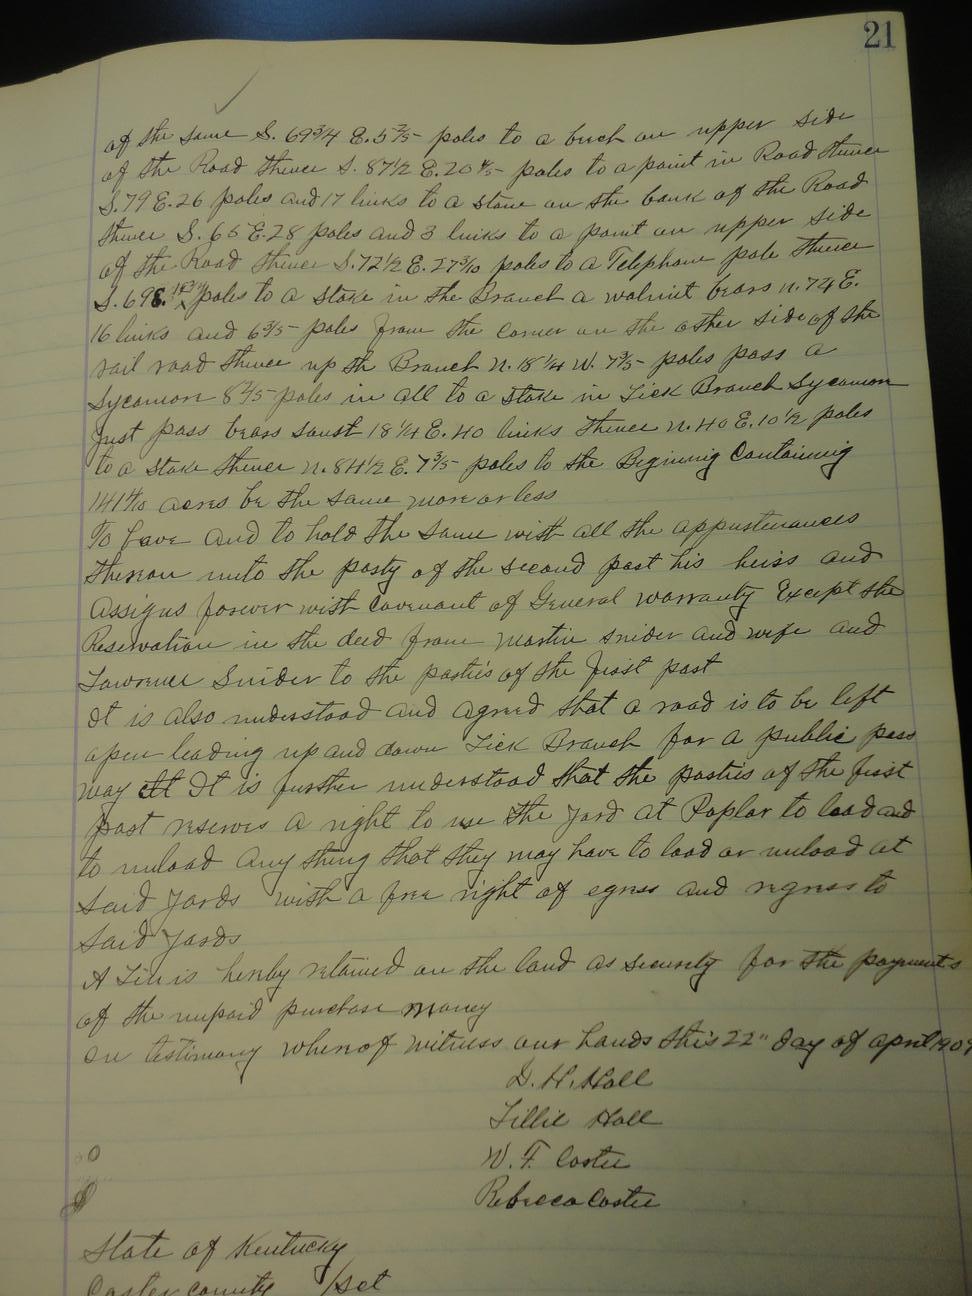 21
of the same S. 69 3/4 E. 5 2/5 poles to a buch on upper side
of the Road thence S. 87 1/2 E. 20 4/5 poles to a point in Road thence
S. 79 E. 26 poles and 17 links to a stone on the bank of the Road
thence S. 65 E. 28 poles and 3 links to a point on upper side
of the Road thence S. 72 1/2 E. 27 3/10 poles to a Telephone pole thence
S. 69 E. poles to a stake in the Branch a walnut bears N. 74 E.
16 links and 6 3/5 poles from the corner on the other side of the
rail road thence up th Branch N. 18 1/4 W. 7 3/5 poles pass a
Sycamore 8 2/5 poles in all to a stake in Lick Branch Sycamore
Just pass bears 18 1/4 E. 40 links thence N. 40 E. 10 1/2 poles
to a stake thence N. 84 1/2 E. 7 3/5 poles to the Begining Containing
141 4/10 acres be the same more or less
To have and to hold the same with all the appurtenances
thereon unto the party of the second part his heirs and
assigns forever with covenant of General warranty Except the
Reservation in the deed from Martin Snider and wife and
Lawrence Snider to the parties of the first part
It is also understood and agreed that a road is to be left
open leading up and down Lick Branch for a public pass
way It is further understood that the parties of the first
part reserves a right to use the Yard at Poplar to load and
to unload any thing that they may have to load or unload at
Said Yards with a free right of egress and regress to
Said Yards
A Lien is hereby retained on the land as security for the payments
of the unpaid purchase money
In testimony whereof witness our hands this 22" day of april 1909
D. H. Hall
Lillie Hall
W. F. Carter
Rebecca Carter
State of Kentucky
Carter county /Sct